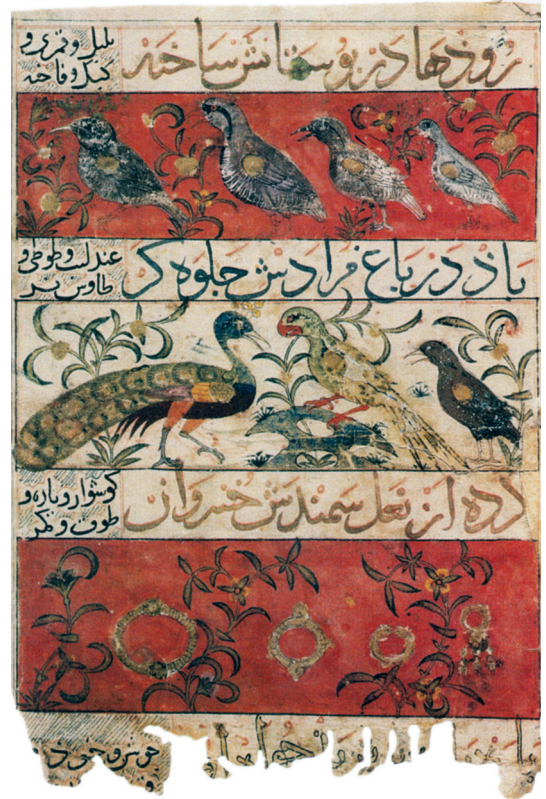 رودها در بوستانش ساخته
بلبل و قمری و
کبک و فاخته
باذ در باغ مرادش جلوه کر
عندلیب و طوطی و
طاوس نر
کرده از نعل سمندش خسروان
کوشوار و یاره و
طوق و کمر
جوشن و خود